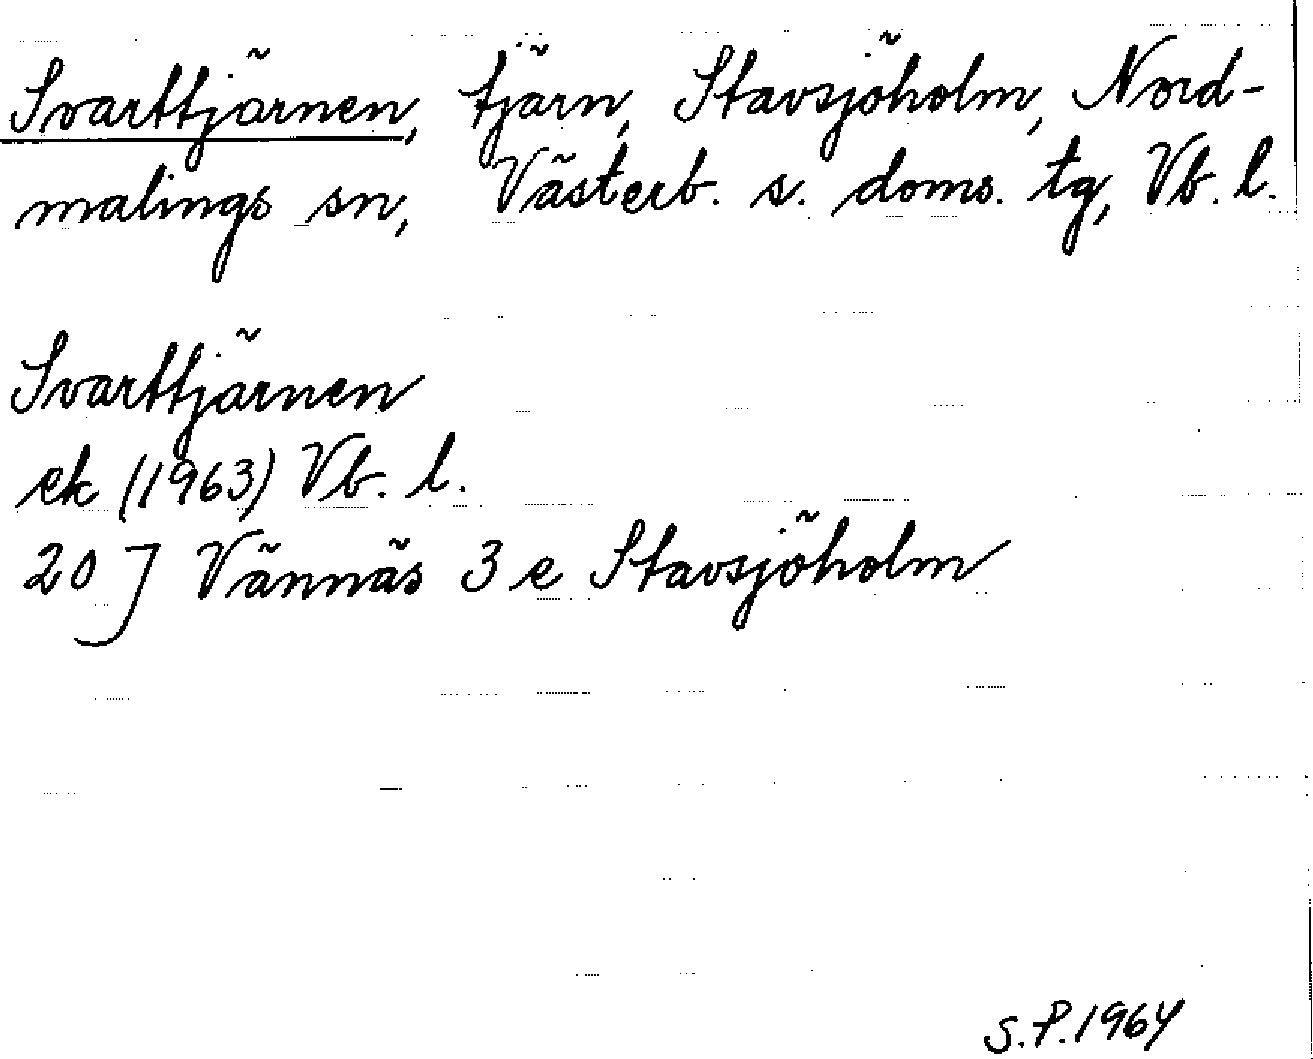 Svarttjärnen, tjärn, Stavsjöholm, Nord-
malings sn, Västerb. s. doms. tg, Vb. l.
Svarttjärnen
ek (1963) Vb. l.
20 J Vännäs 3 e Stavsjöholm
S.P.1964